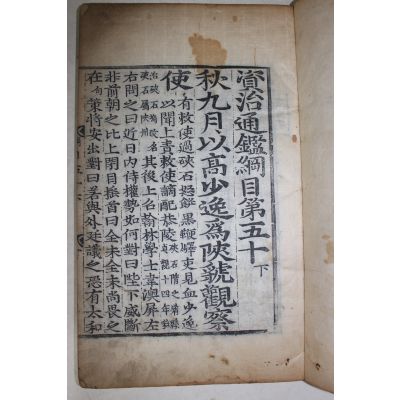 資治通鑑綱目第五十下
秋九月以高少逸爲陜虢觀察
使
有敕使過硤石怒餅黑鞭驛吏見血少逸
以聞上責敕使謫配恭陵
其後上召翰林學士韋澳屛左
右問之曰近日内侍權勢如何對曰陛下威斷
非前朝之比上閉目搖首曰全未全未尚畏之
在句策將安出對曰若與外廷議之恐有太和